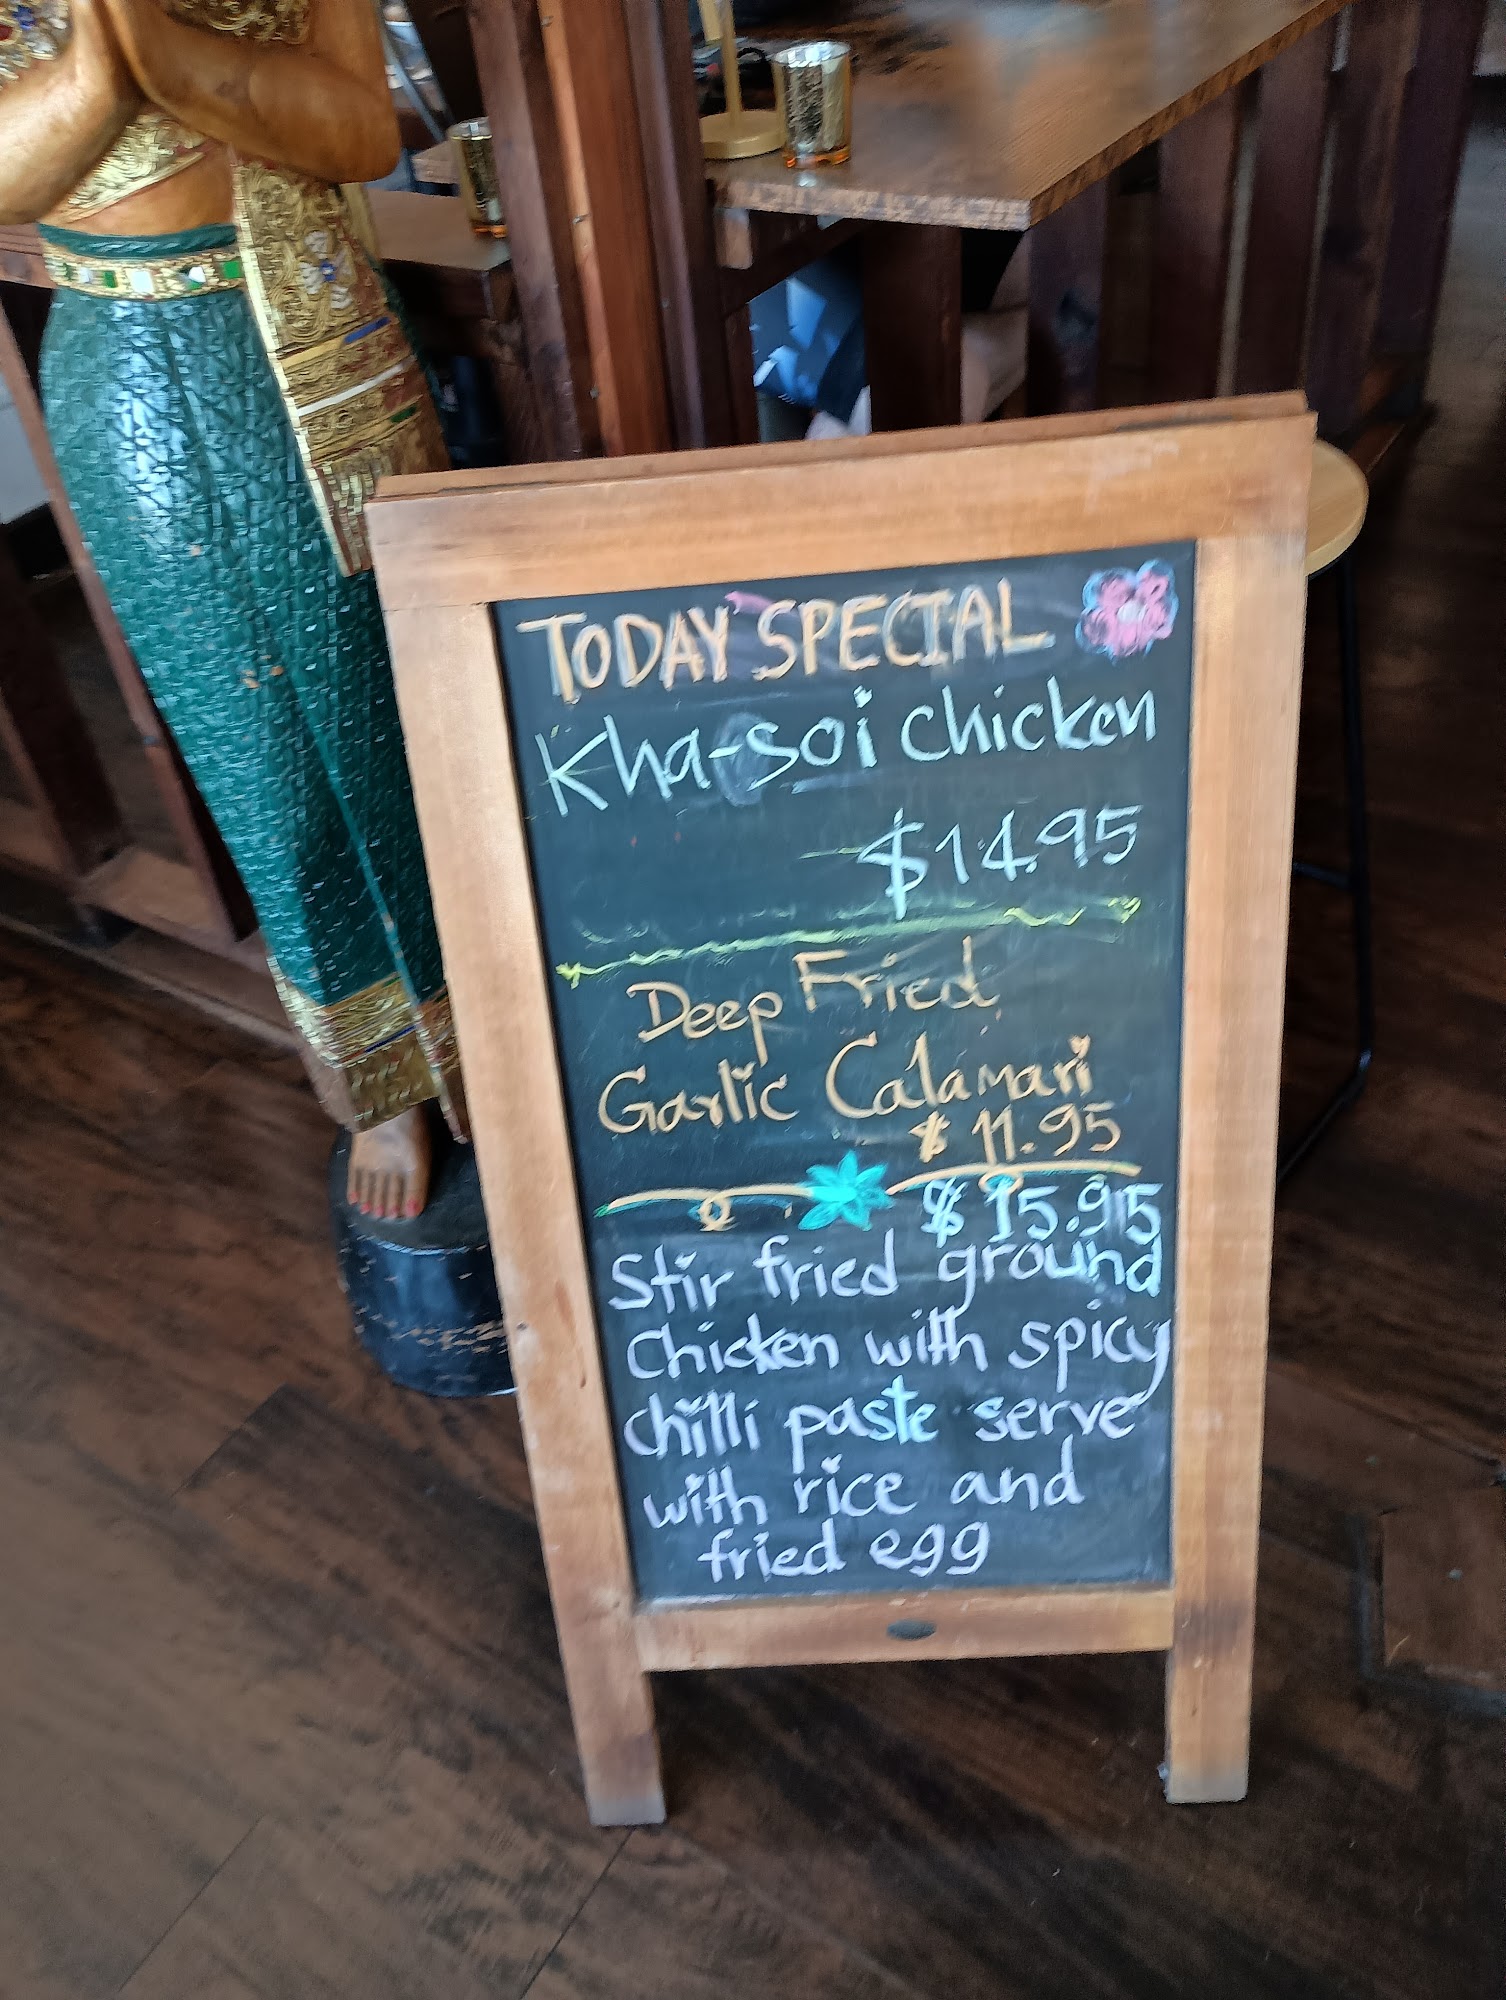 TODAY SPECIAL
Kha-soi chicken
$14.95
Deep Fried
Garlic Calamari
$11.95
$15.95
Stir fried ground
Chicken with spicy
chilli paste serve
with rice and
fried egg